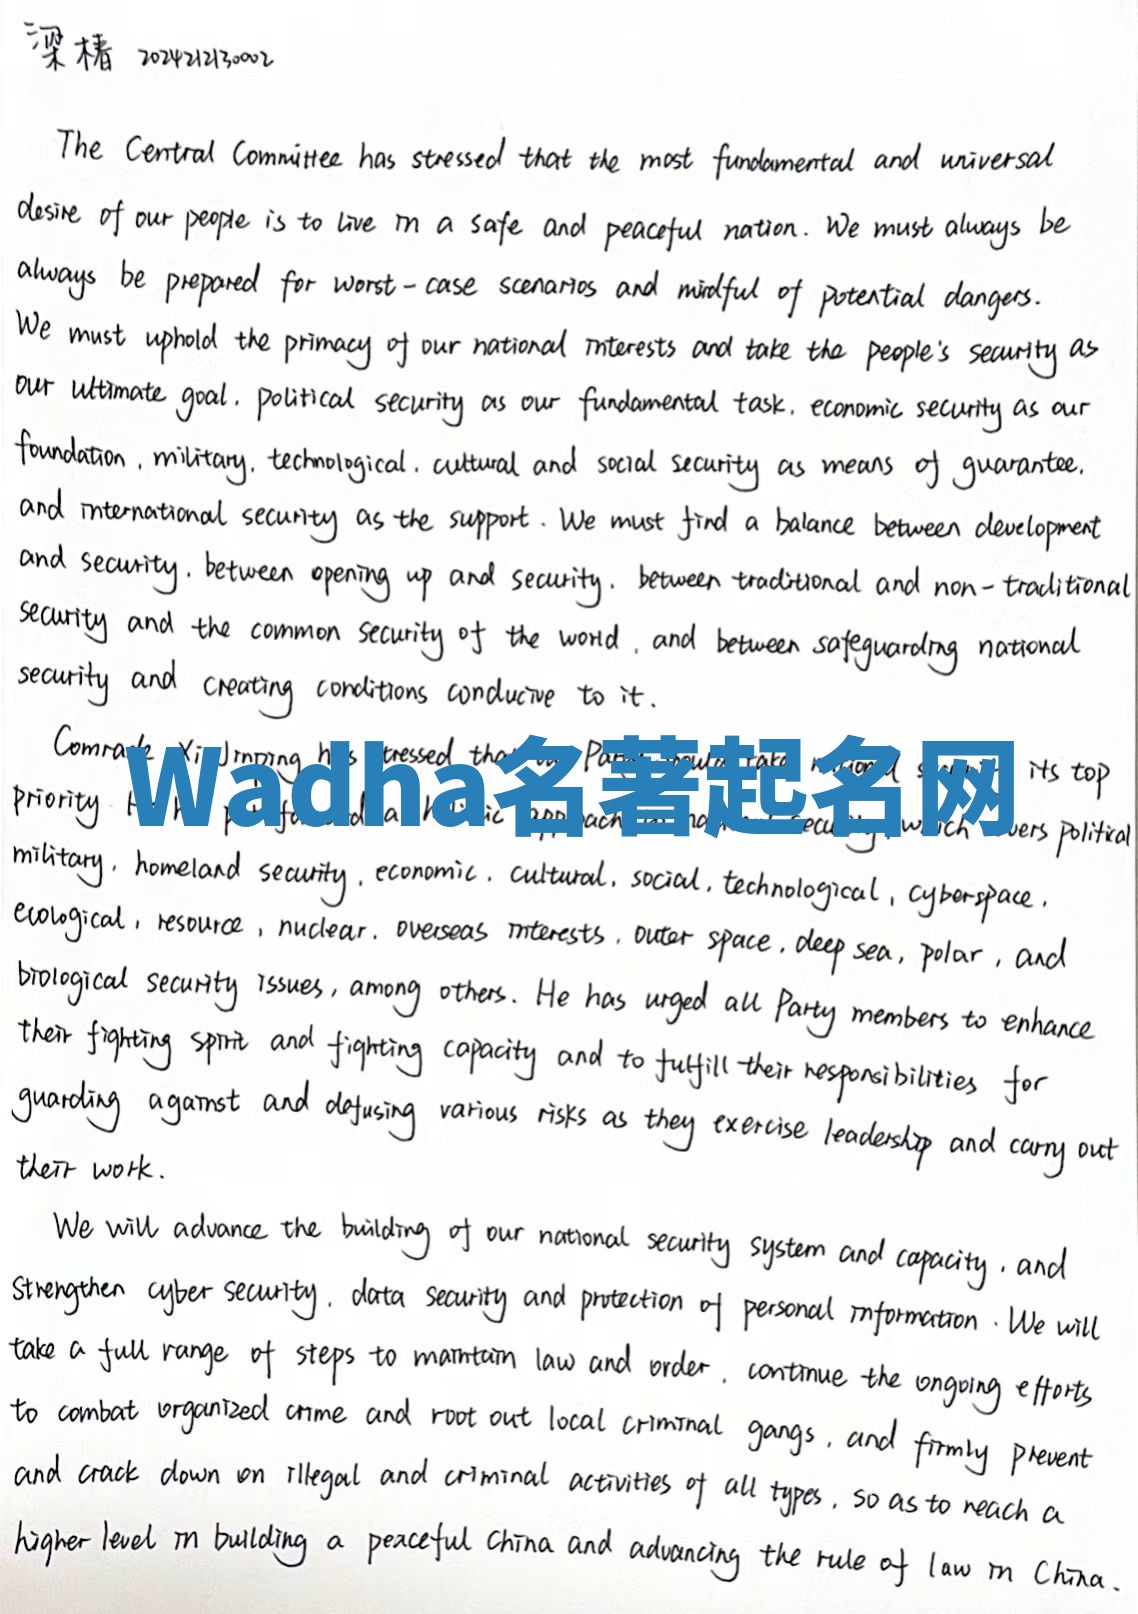 梁椿 2024212130002
The Central Committee has stressed that the most fundamental and universal
desire of our people is to live in a safe and peaceful nation. We must always be
always be prepared for worst-case scenarios and mindful of potential dangers.
We must uphold the primacy of our national interests and take the people's security as
our ultimate goal, political security as our fundamental task, economic security as our
foundation, military, technological, cultural and social security as means of guarantee,
and international security as the support. We must find a balance between development
and security, between opening up and security, between traditional and non-traditional
security and the common security of the world, and between safeguarding national
security and creating conditions conducive to it.
Comrade Xi Jinping has stressed that Party should take national its top
Wadha名著起名网
priority a approach security, which covers political
military, homeland security, economic, cultural, social, technological, cyberspace,
ecological, resource, nuclear, overseas interests, outer space, deep sea, polar, and
biological security issues, among others. He has urged all Party members to enhance
their fighting spirit and fighting capacity and to fulfill their responsibilities for
guarding against and defusing various risks as they exercise leadership and carry out
their work.
We will advance the building of our national security system and capacity, and
strengthen cyber security, data security and protection of personal information. We will
take a full range of steps to maintain law and order, continue the ongoing efforts
to combat organized crime and root out local criminal gangs, and firmly prevent
and crack down on illegal and criminal activities of all types, so as to reach a
higher level in building a peaceful China and advancing the rule of law in China.